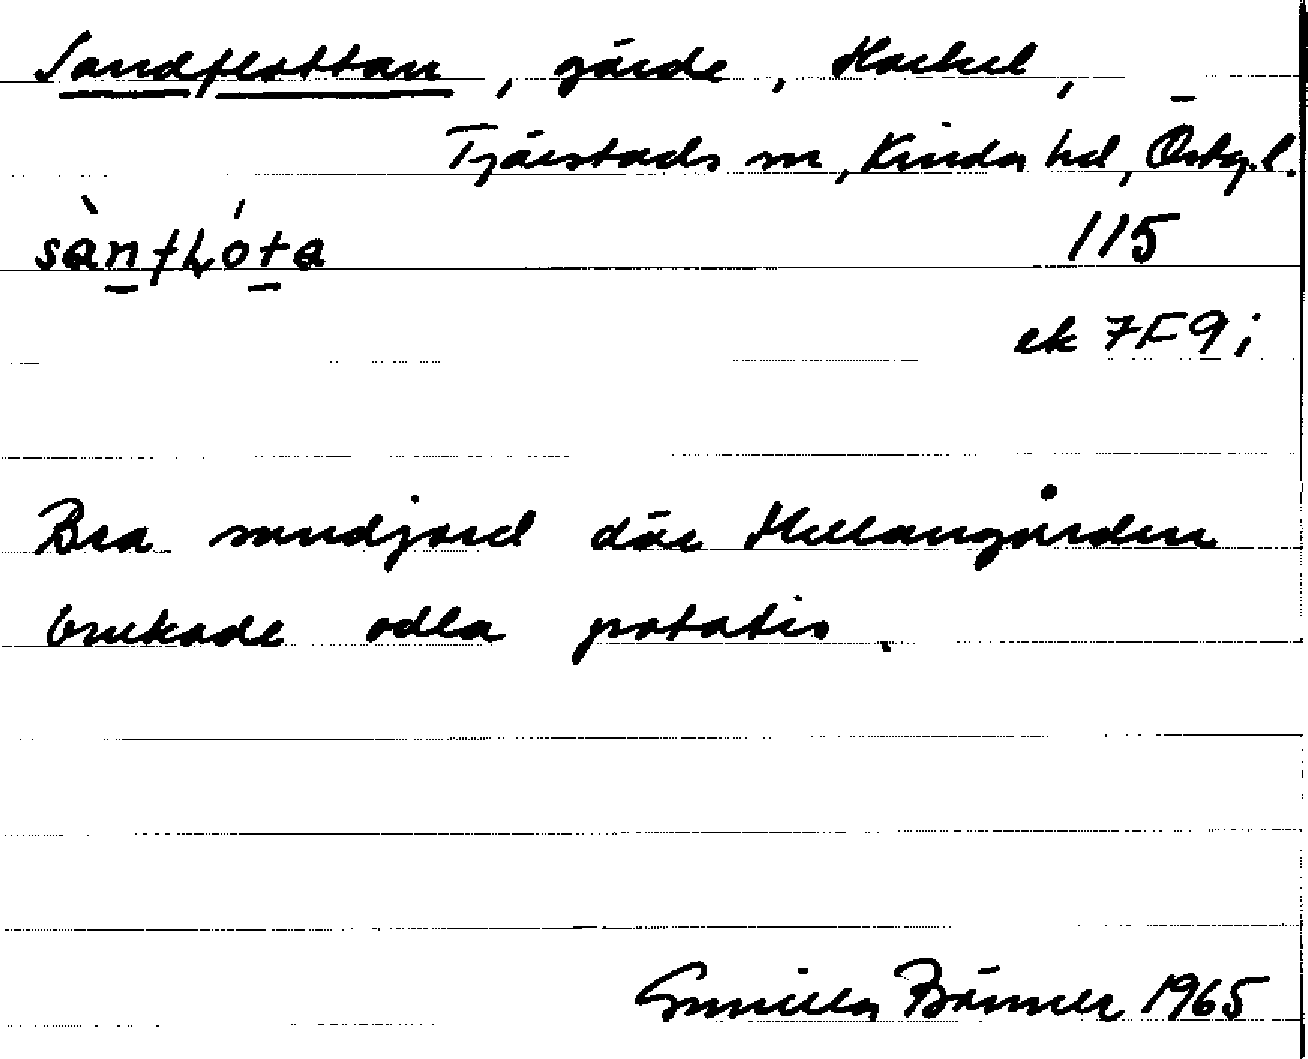 Sandflottan, gärde, Horkel,
Tjärstads sn, Kinda hd, Östg.l.
115
ek 7F9i
Bra sandjord där Mellangården
brukade odla potatis.
Gunilla 1965